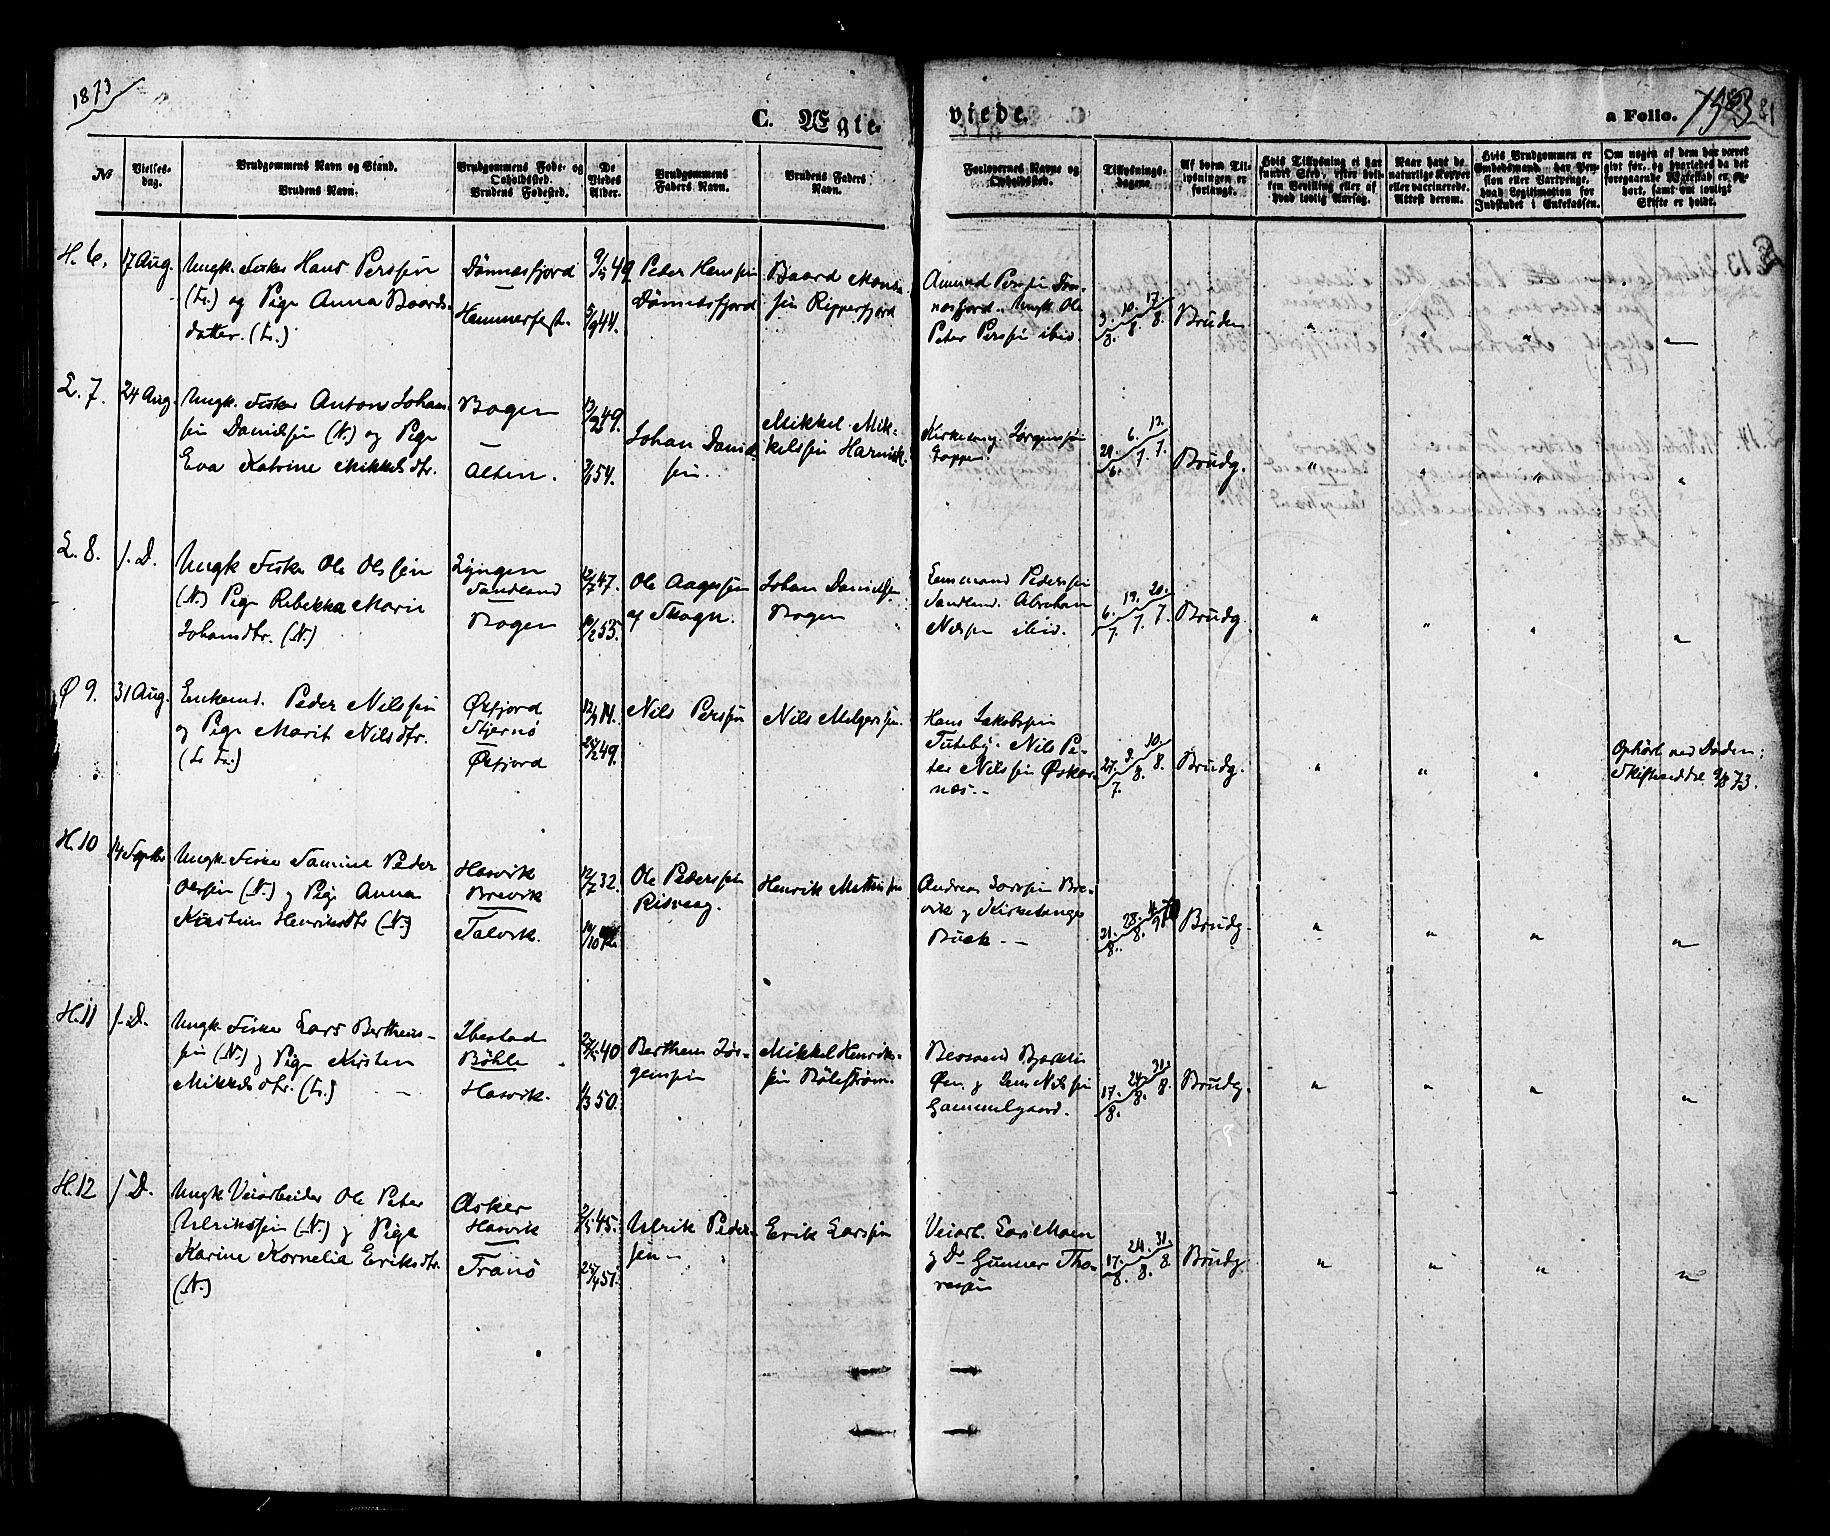 1873
C. Ægte-
viede.
a Folio. 153
No
Vielses-
dag.
Brudgommens Navn og Stand.
Brudens Navn.
Brudgommens Føde- og
Opholdssted.
Brudens Fødested.
De
Viedes
Alder.
Brudgommens
Faders Navn.
Brudens Faders
Navn.
Forlovernes Navne og
Opholdssted.
Tillysnings-
dagene.
Af hvem Til-
lysningen er
forlangt.
Hvis Tillysning ei har
fundet Sted, efter hvil-
ken Bevilling eller af
hvad lovlig Aarsag.
Naar havt de
naturlige Kopper
eller vaccinerede.
Attest derom.
Hvis Brudgommen er
Embedsmand, har Pen-
sion eller Vartpenge,
hvad Legitimation for
Indskudet i Enkekassen.
Om nogen af dem har været
givt før, og hvorledes da det
foregaaende Ægteskab er op-
hørt, samt om lovligt
Skifte er holdt.
H. 6.
17 Aug.
Ungk. Fisker Hans Perssen
(Fr.) og Pige Anna Baards-
datter. (Fr.)
Dönnesfjord
Hammerfest.
9/12 49
5/9 44.
Peter Hanssen
Dönnesfjord
Baard Mons-
sen Ripperfjord
Amund Perssen Dön-
nesfjord. Ungk. Ole
Peter Perssen ibid.
3/8. 10/8. 17/8.
Bruden
" " " "
L. 7.
24 Aug.
Ungk. Fisker Anton Johan-
sen Danielsen (N.) og Pige
Eva Katrine Mikkelsdtr.
Bogen
Alten.
49.
54.
Johan Daniel-
sen.
Mikkel Mik-
kelssen
Kirkesang. Jørgenssen
Loppen.
29/6. 6/7. 13/7.
Brudg.
" " " "
L. 8.
s. D.
Ungk Fisker Ole Olssen
(N.) Pige Rebekka Marie
Johansdtr. (N.)
Lyngen
Sandland
Bogen
12/7 47.
53.
Ole Aagessen
af Skogn.
Johan Danielsen
Bogen
Emmand Pederssen
Sandland. Abraham
Nilssen ibid.
6/7. 19/7. 20/7.
Brudg.
" " " "
Ø 9.
31 Aug.
Enkemd. Peder Nilssen
og Pige Marit Nilsdtr.
(Fr. Fr.)
Øxfjord
Stjernø
Øxfjord
14.
49.
Nils Perssen
Nils Melgerssen.
Hans Jakobssen
Tuteby. Nils Pe-
ter Nilssen Øskar-
næs.
27/7. 3/8. 10/8.
Brudg.
" " "
Ophört ved Døden;
Skiftseddel 9/8 73.
H. 10
14 Septbr
Ungk. Fisker Samine Peder
Olssen (N.) og Pige Anna
Kirstine Henriksdtr (N.)
Hasvik
Brevik
Talvik.
12/7 32.
Ole Pederssen
Risvaag.
Henrik Mathissen
Andreas Larssen Bre-
vik og Kirkesanger
Buck.
21/8. 28/8.
Brudg.
" " " "
H. 11
s. D.
Ungk. Fisker Lars Berthens-
sen (N.) og Pige Kirsten
Mikkelsdtr. (Fr.)
Ibestad
Böhle
Hasvik.
40
1/3 50.
Berthens Jör-
genssen
Mikkel Henriks-
sen Bölestrøm.
Øen. og Jens Nilssen
Gammelgaard.
17/8. 24/8. 31/8.
Brudg.
" " " "
H. 12
s. D.
Ungk. Veiarbeider Ole Peter
Ulrikssen (N.) og Pige
Karine Kornelia Eriksdtr.
(N.)
Asker
Hasvik
Tranö
45.
25/4 51.
Ulrik Peder-
sen
Erik Larssen
Veiarb. Lars Moen
og Do Gunner Tho-
ressen
17/8. 24/8. 31/8.
Brudg.
" " " "